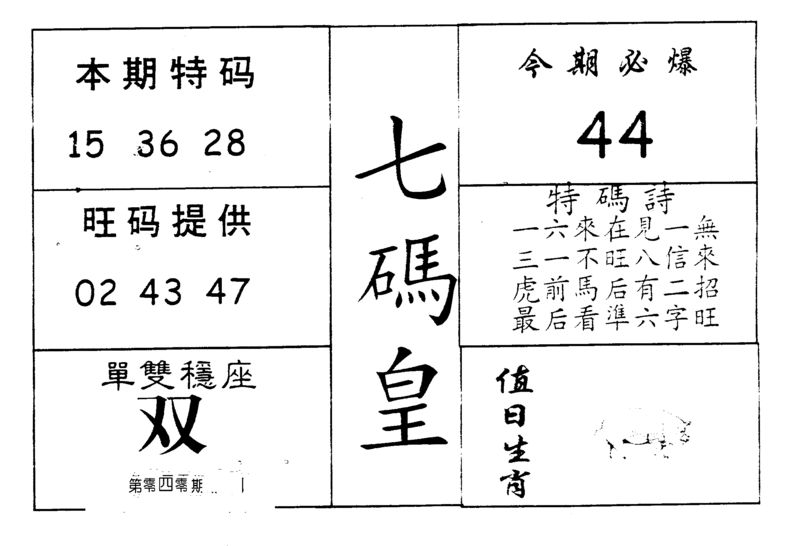 本期特码
15 36 28
旺码提供
02 43 47
單雙穩座
双
第零四零期
七
碼
皇
今期必爆
44
特碼詩
一六來在見一無
三一不旺八信來
虎前馬后有二招
最后看準六字旺
值
日
生
肖